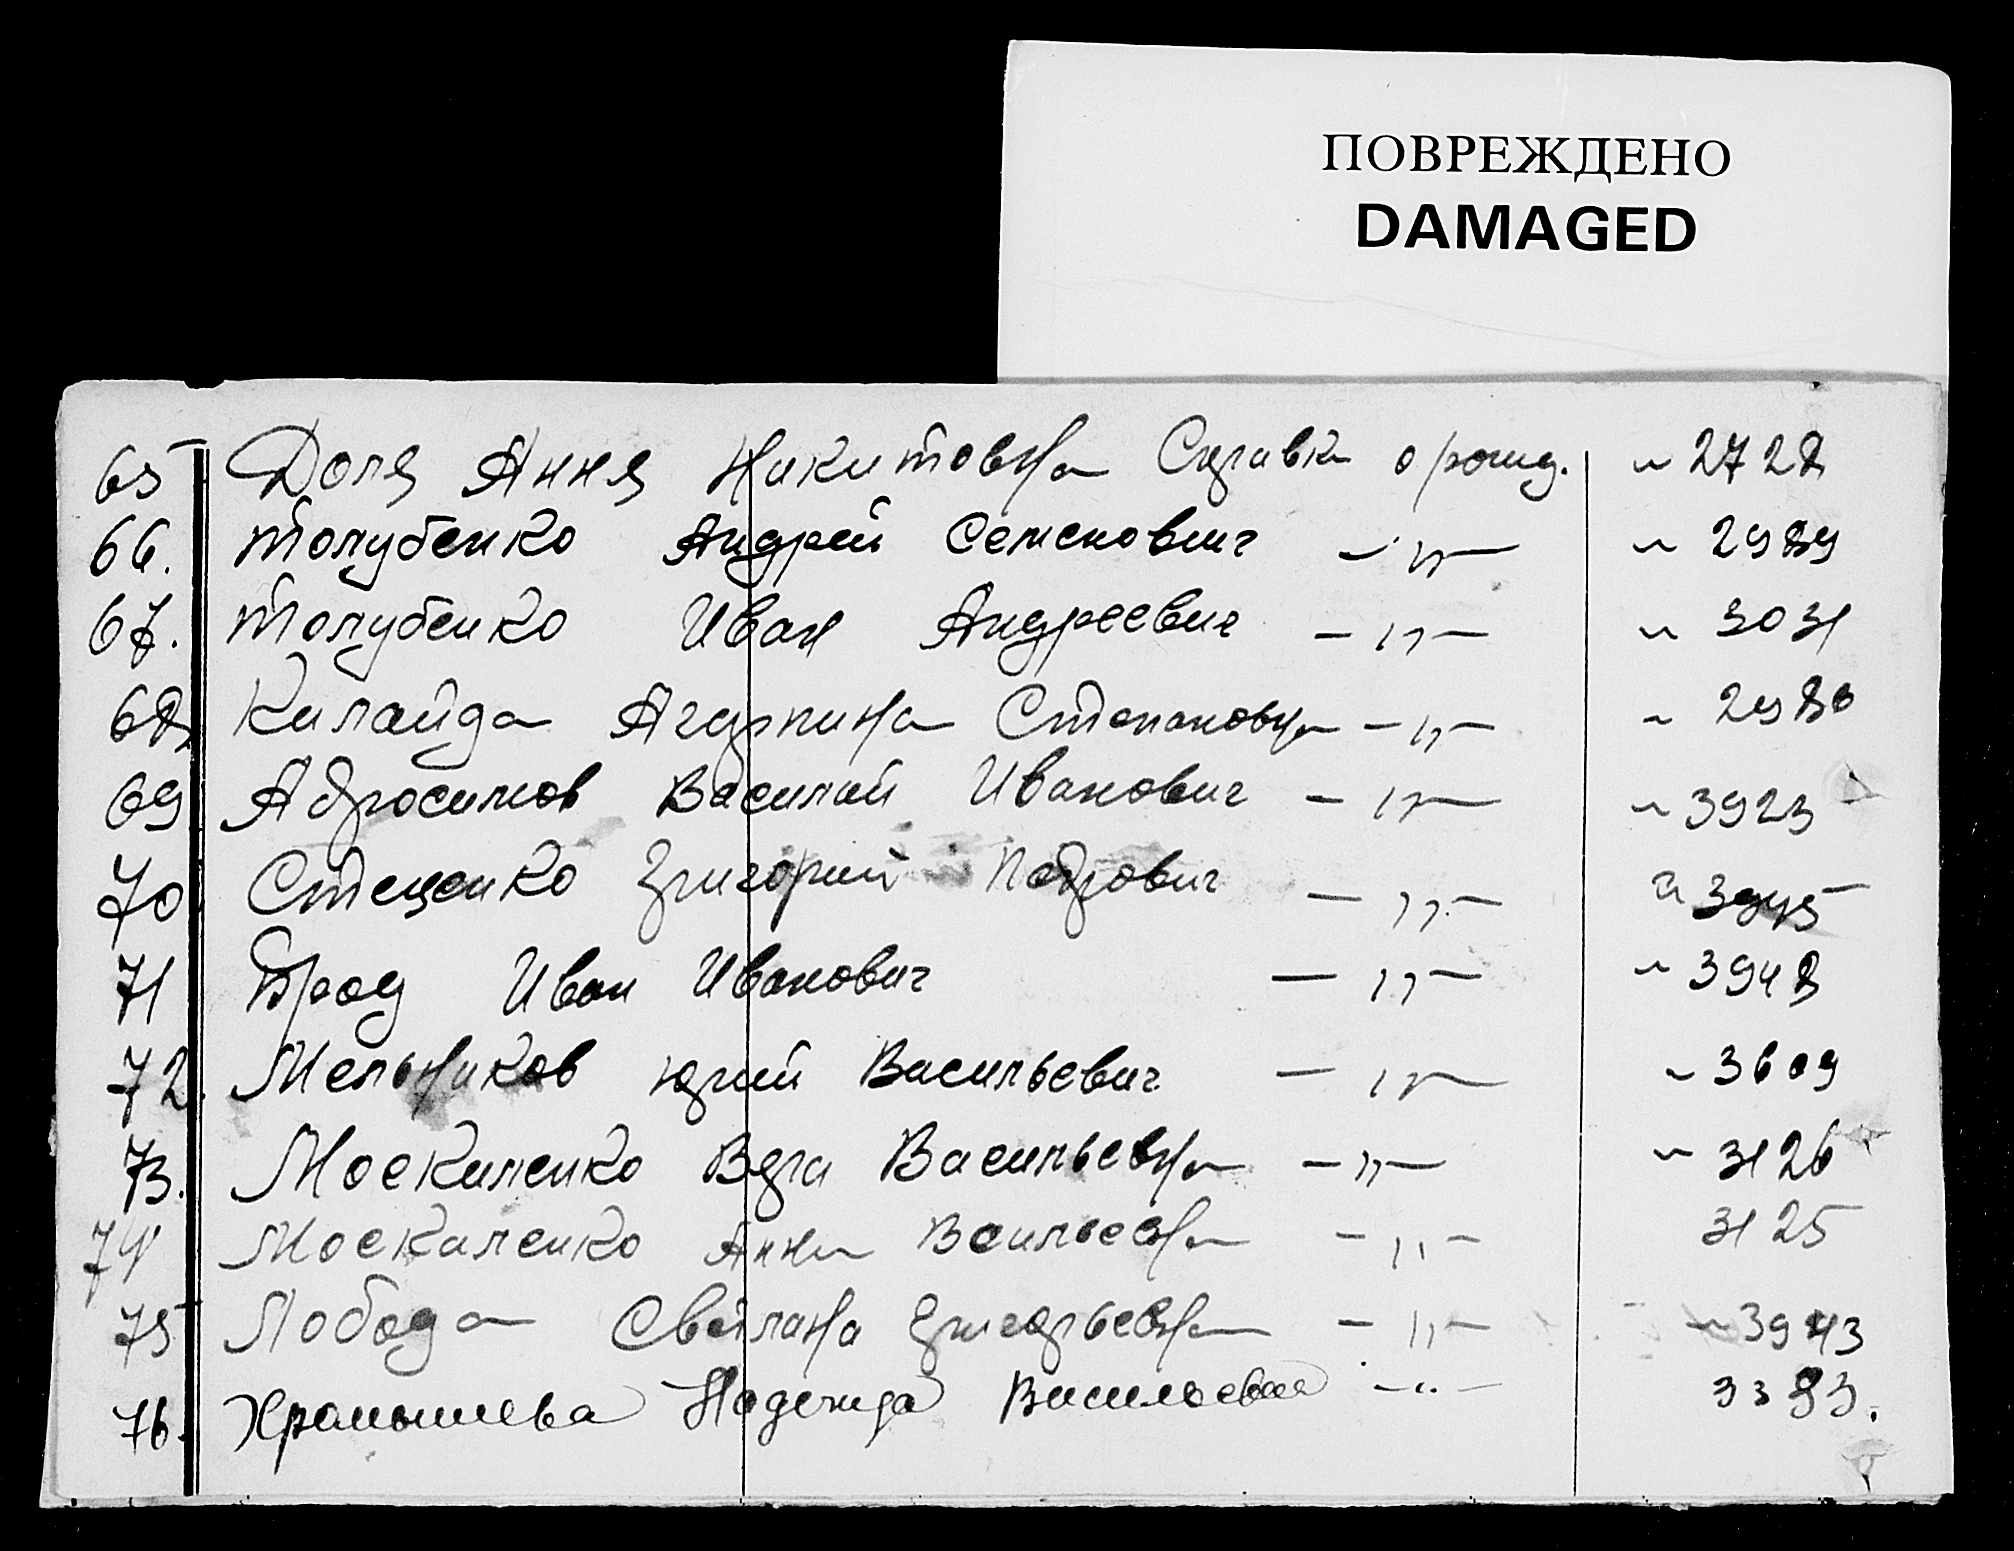 ПОВРЕЖДЕНО
DAMAGED
65 Доля Анна Никитовна Справка о рожд. ~ 2728
66. Толубенко Андрей Семенович — " — ~ 2989
67. Толубенко Иван Андреевич — " — ~ 3031
68 Килайда Агрпина Степановна — " — ~ 2980
69 Абросимов Василий Иванович — " — ~ 3923
70 Стеценко Григорий Петрович — " — ~ 3945
71 Брод Иван Иванович — " — ~ 3948
72. Мельников Юрий Васильевич — " — ~ 3609
73. Москаленко Вера Васильевна — " — ~ 3126
74 Москаленко Анна Васильевна — " — 3125
75 Лобода Светлана Григорьевна — " — ~ 3943
76. Храмышева Надежда Васильевна — " — 3383.